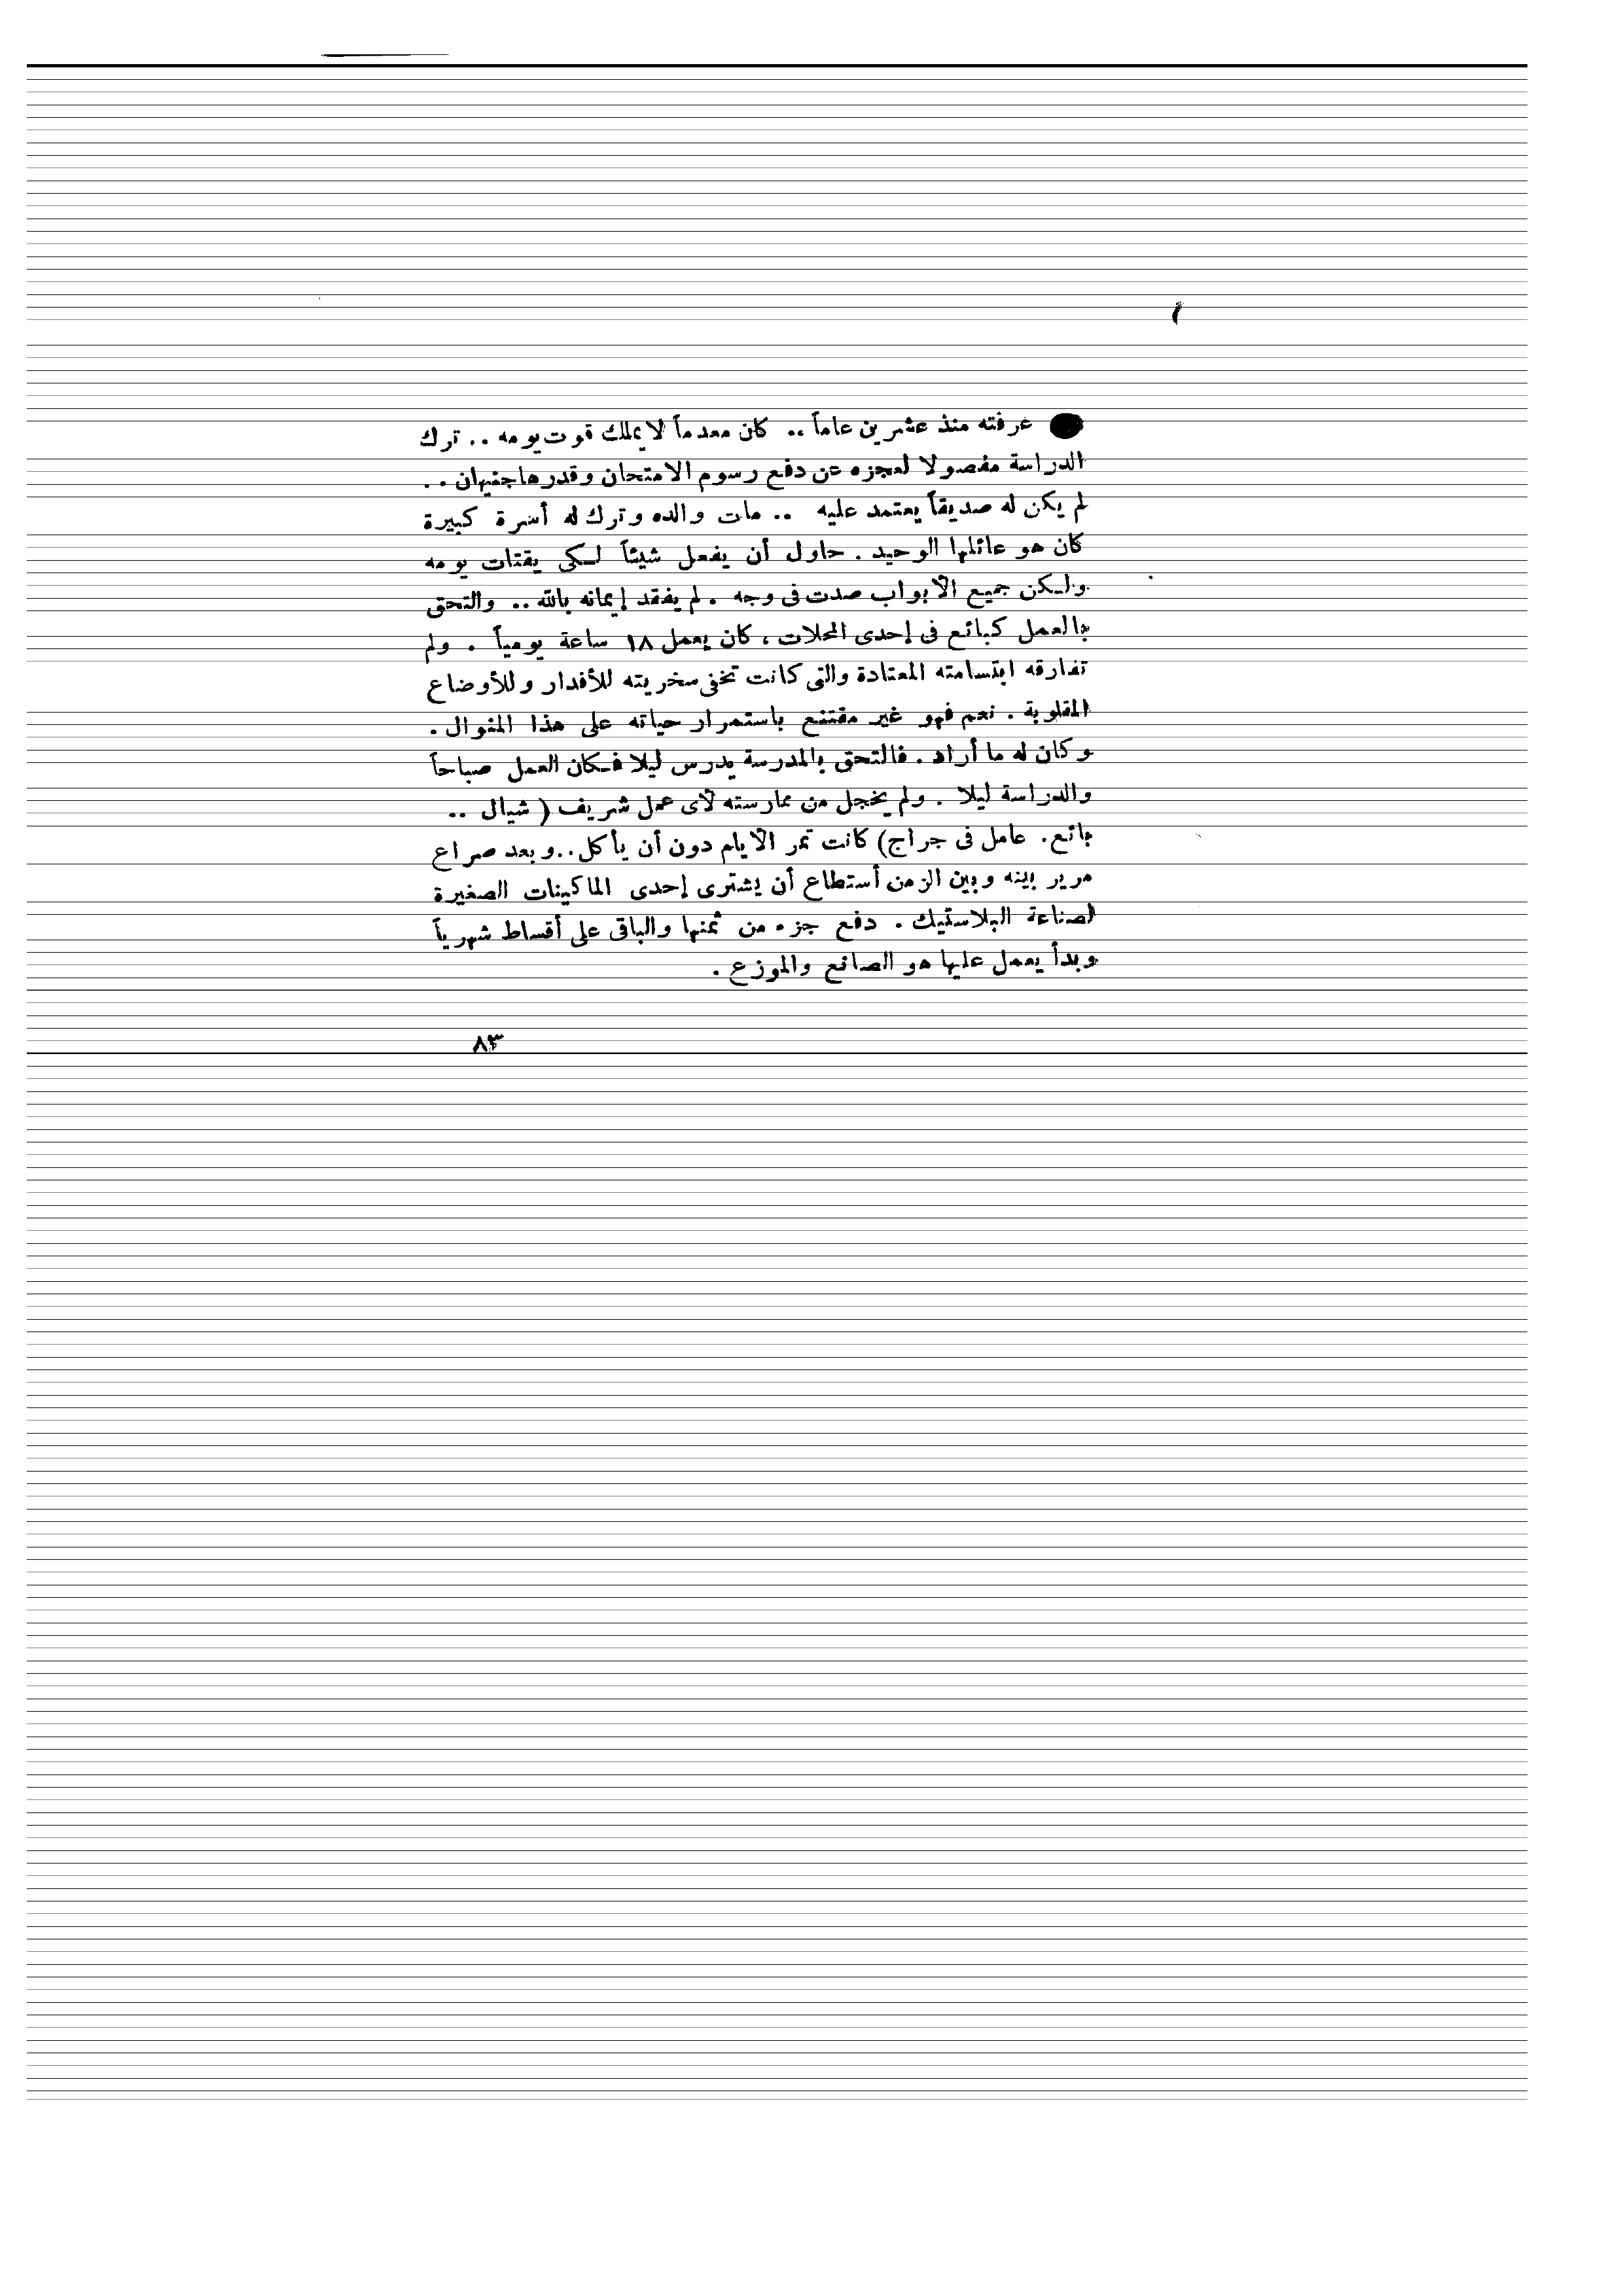 ● عرفته منذ عشرين عاماً .. كان معدماً لا يملك قوت يومه .. ترك
الدراسة مفصولا لعجزه عن دفع رسوم الامتحان وقدرها جنيهان ..
لم يكن له صديقاً يعتمد عليه .. مات والده وترك له أسرة كبيرة
كان هو عائلها الوحيد . حاول أن يفعل شيئاً لكى يقتات يومه
ولكن جميع الأبواب صدت فى وجه . لم يفقد إيمانه بالله .. والتحق
بالعمل كبائع فى إحدى المحلات ، كان يعمل ١٨ ساعة يومياً . ولم
تفارقه ابتسامته المعتادة والتى كانت تخفى سخريته للأقدار وللأوضاع
المقلوبة . نعم فهو غير مقتنع باستمرار حياته على هذا المنوال .
وكان له ما أراد . فالتحق بالمدرسة يدرس ليلا فكان العمل صباحاً
والدراسة ليلا . ولم يخجل من ممارسته لأى عمل شريف ( شيال ..
بائع . عامل فى جراج) كانت تمر الأيام دون أن يأكل .. وبعد صراع
مرير بينه وبين الزمن أستطاع أن يشترى إحدى الماكينات الصغيرة
لصناعة البلاستيك . دفع جزء من ثمنها والباقى على أقساط شهرياً
وبدأ يعمل عليها هو الصانع والموزع .
٨٣